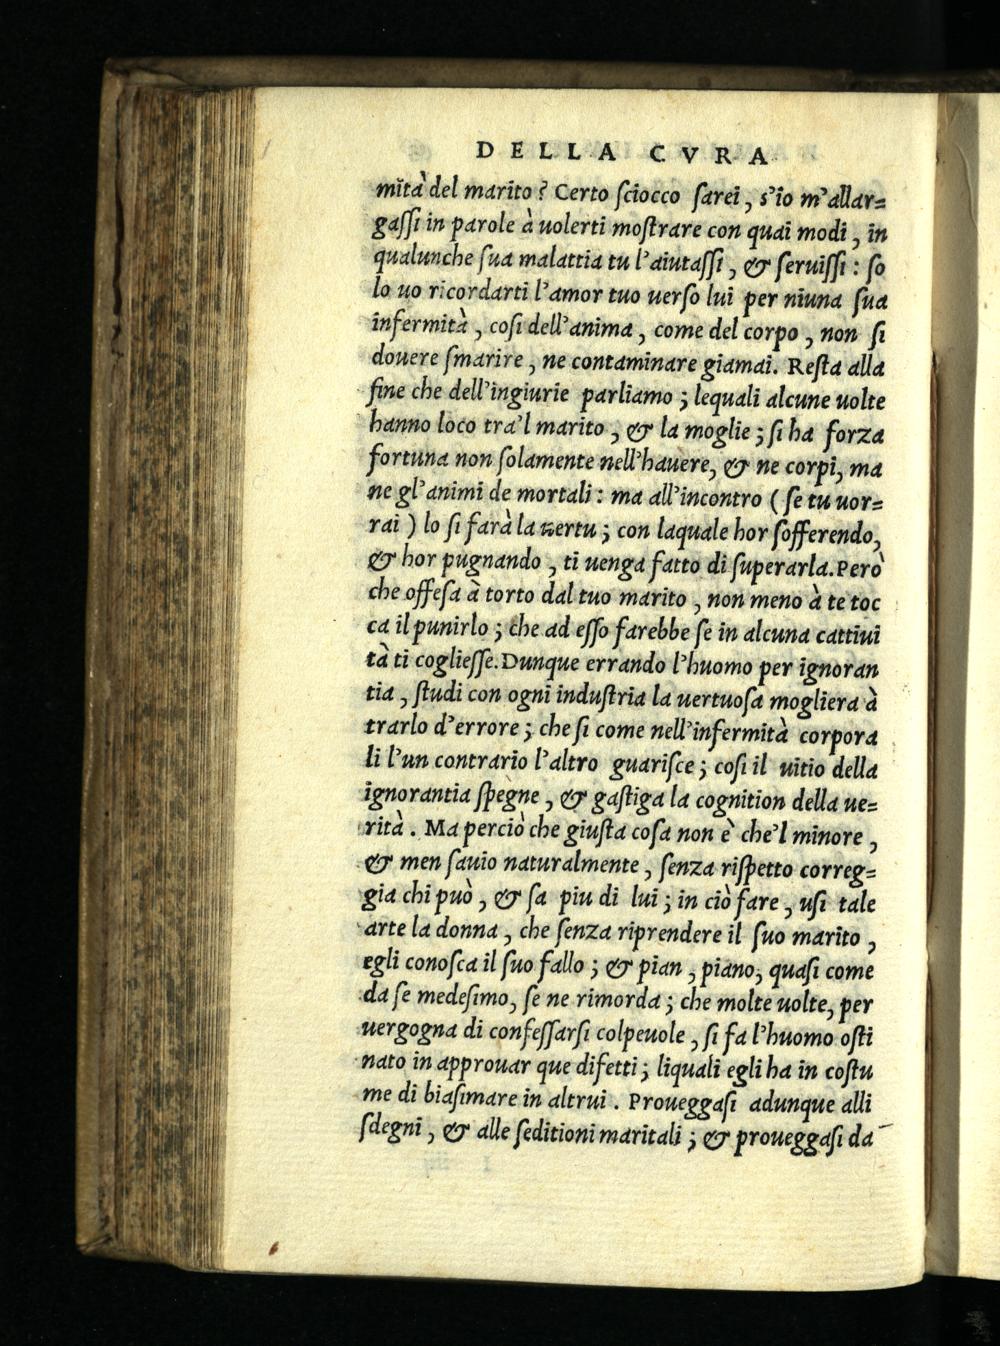 DELLA CVRA
mità del marito? Certo ſciocco ſarei, s'io m'allar=
gaſſi in parole à uolerti moſtrare con quai modi, in
qualunche ſua malattia tu l'aiutaſſi, & ſeruiſſi: ſo
lo uo ricordarti l'amor tuo uerſo lui per niuna ſua
infermità, coſi dell'anima, come del corpo, non ſi
douere ſmarire, ne contaminare giamai. Reſta alla
fine che dell'ingiurie parliamo; lequali alcune uolte
hanno loco tra'l marito, & la moglie; ſi ha forza
fortuna non ſolamente nell'hauere, & ne corpi, ma
ne gl'animi de mortali: ma all'incontro (ſe tu uor=
rai) lo ſi farà la uertu; con laquale hor ſofferendo,
& hor pugnando, ti uenga fatto di ſuperarla. Però
che offeſa à torto dal tuo marito, non meno à te toc
ca il punirlo; che ad eſſo farebbe ſe in alcuna cattiui
tà ti coglieſſe. Dunque errando l'huomo per ignoran
tia, ſtudi con ogni induſtria la uertuoſa mogliera à
trarlo d'errore; che ſi come nell'infermità corpora
li l'un contrario l'altro guariſce; coſi il uitio della
ignorantia ſpegne, & gaſtiga la cognition della ue=
rità. Ma perciò che giuſta coſa non è che'l minore,
& men ſauio naturalmente, ſenza riſpetto correg=
gia chi può, & ſa piu di lui; in ciò fare, uſi tale
arte la donna, che ſenza riprendere il ſuo marito,
egli conoſca il ſuo fallo; & pian, piano, quaſi come
da ſe medeſimo, ſe ne rimorda; che molte uolte, per
uergogna di confeſſarſi colpeuole, ſi fa l'huomo oſti
nato in approuar que difetti; liquali egli ha in coſtu
me di biaſimare in altrui. Proueggaſi adunque alli
ſdegni, & alle ſeditioni maritali; & proueggaſi da